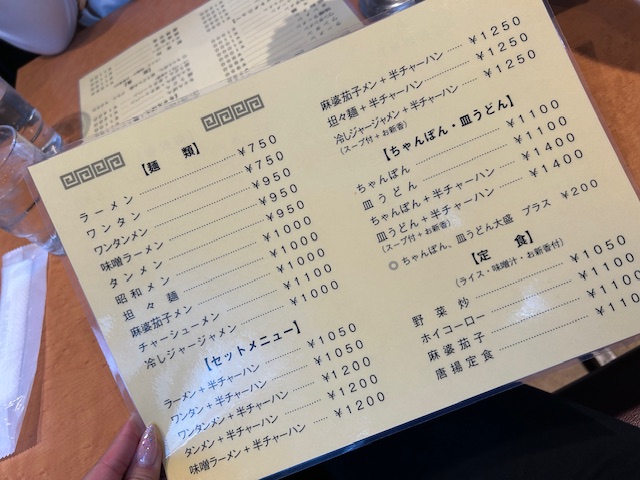 【麺　類】
ラーメン……¥750
ワンタン……¥750
ワンタンメン……¥950
味噌ラーメン……¥950
タンメン……¥950
昭和メン……¥1000
坦々麺……¥1000
麻婆茄子メン……¥1000
チャーシューメン……¥1100
冷しジャージャメン……¥1000
【セットメニュー】
ラーメン+半チャーハン……¥1050
ワンタン+半チャーハン……¥1050
ワンタンメン+半チャーハン……¥1200
タンメン+半チャーハン……¥1200
味噌ラーメン+半チャーハン……¥1200
麻婆茄子メン+半チャーハン……¥1250
坦々麺+半チャーハン……¥1250
冷しジャージャメン+半チャーハン……¥1250
(スープ付+お新香)
【ちゃんぽん・皿うどん】
ちゃんぽん……¥1100
皿うどん……¥1100
ちゃんぽん+半チャーハン……¥1400
皿うどん+半チャーハン……¥1400
(スープ付+お新香)
◎ちゃんぽん、皿うどん大盛　プラス　¥200
【定　食】
(ライス・味噌汁・お新香付)
野菜炒……¥1050
ホイコーロー……¥1100
麻婆茄子……¥1100
唐揚定食……¥110